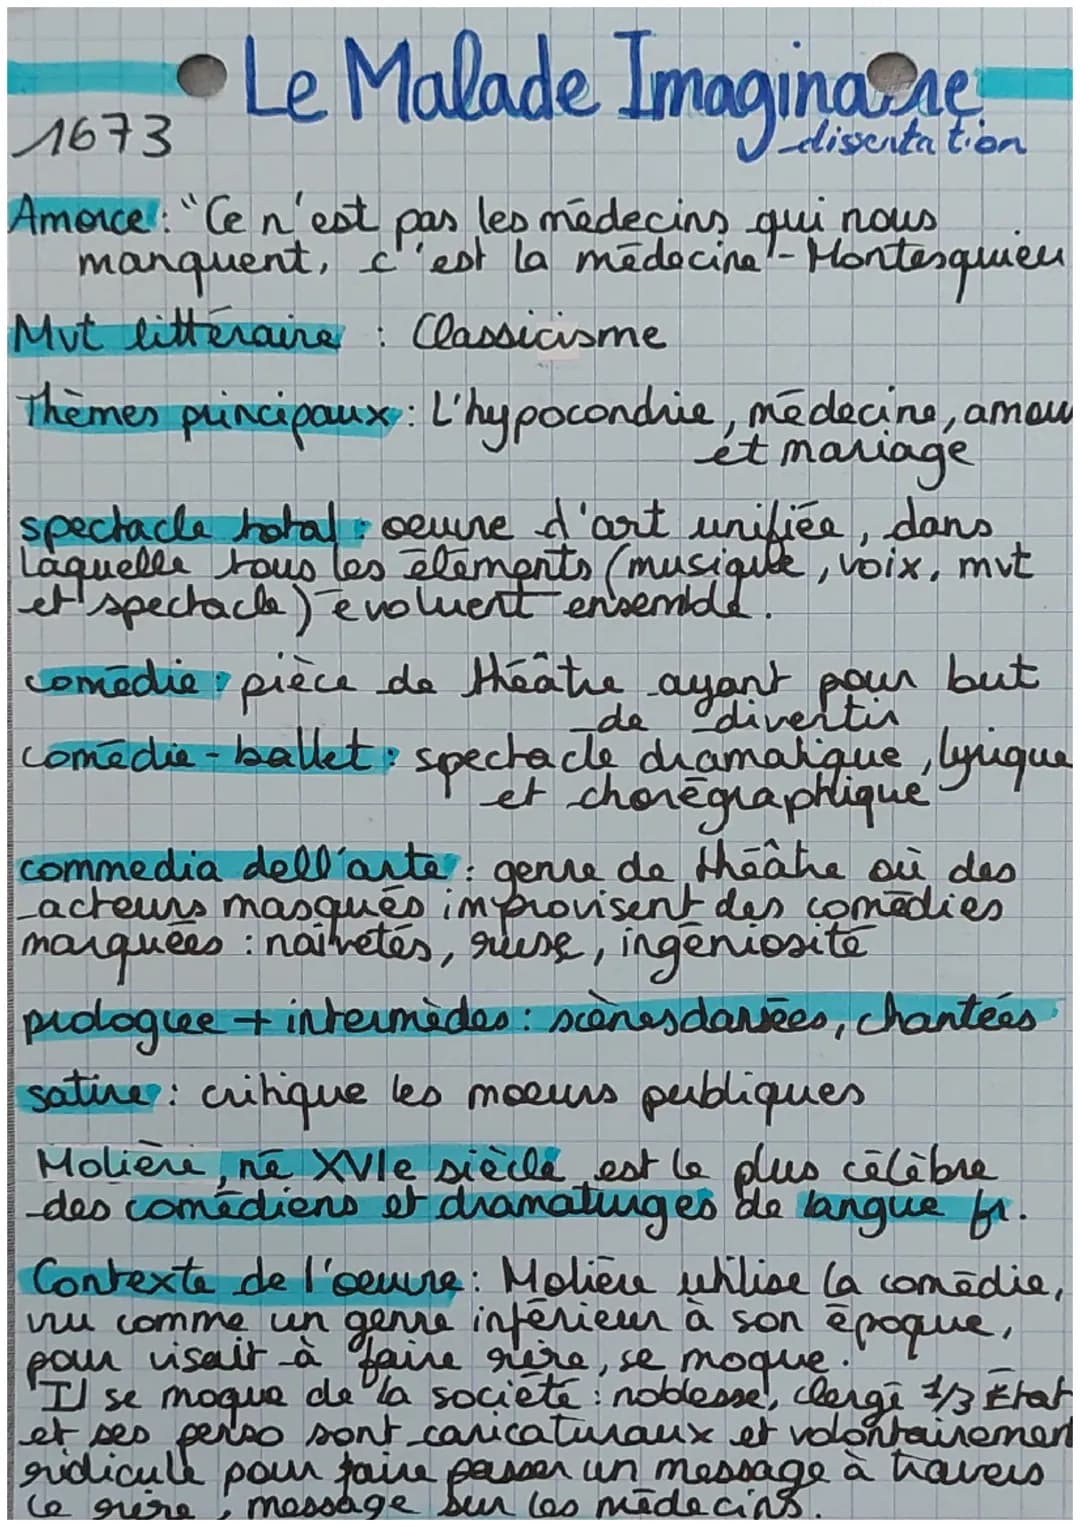 Le Malade Imaginaire
1673
dissertation
Amorce : "Ce n'est pas les médecins qui nous
manquent, c'est la médecine" - Montesquieu
Mvt littéraire : Classicisme
Thèmes principaux : L'hypocondrie, médecine, amour
et mariage
spectacle total : oeuvre d'art unifiée, dans
laquelle tous les éléments (musique, voix, mvt
et spectacle) évoluent ensemble.
comédie : pièce de théâtre ayant pour but
de divertir
comédie-ballet : spectacle dramatique, lyrique
et chorégraphique
commedia dell'arte : genre de théâtre où des
acteurs masqués improvisent des comédies
marquées : naïvetés, ruse, ingéniosité
prologue + intermèdes : scènes dansées, chantées
satire : critique les moeurs publiques
Molière, né XVIe siècle est le plus célèbre
des comédiens et dramaturges de langue fr.
Contexte de l'oeuvre : Molière utilise la comédie,
vu comme un genre inférieur à son époque,
pour visait à faire rire, se moque.
Il se moque de la société : noblesse, clergé 1/3 État
et ses perso sont caricaturaux et volontairement
ridicule pour faire passer un message à travers
le rire, message sur les médecins.